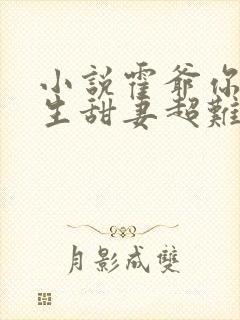 小說霍爺你
生甜妻超難
月影成雙